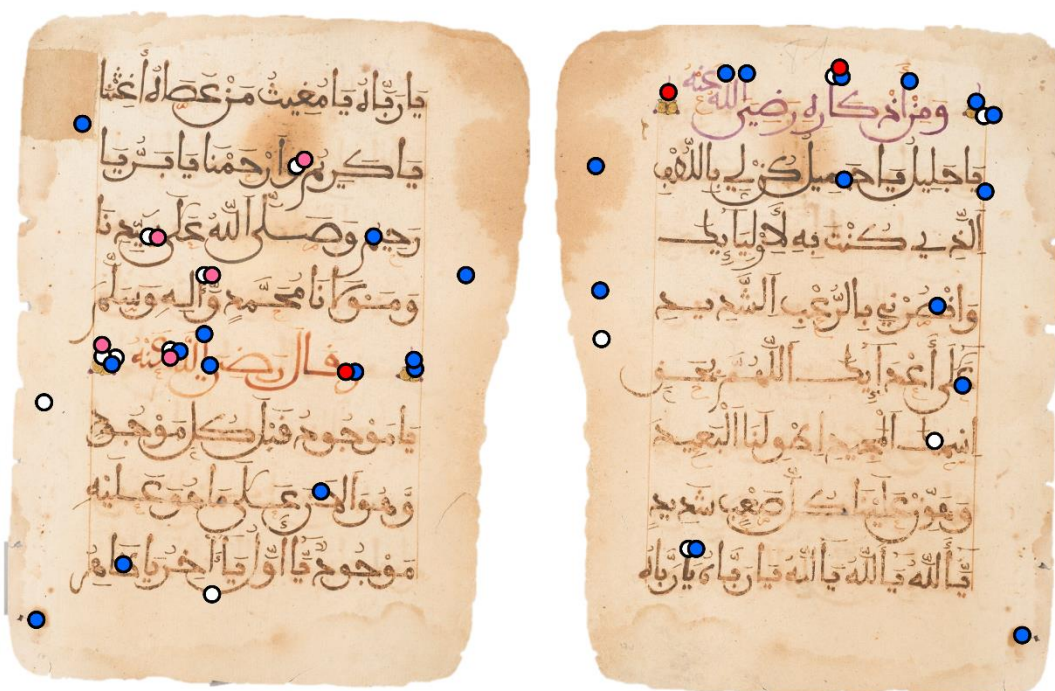 ومن اذكاره رضي الله عنه
يا جليل يا جميل كن لي باللطف
الذي كنت به لأوليائك
وانصرني بالرعب الشديد
على أعدائك اللهم بحق
اسمك المجيد اطو لنا البعيد
وهون علينا كل صعب شديد
يا ألله يا ألله يا ألله يا رباه يا رباه
يا رباه يا مغيث من عصاه أغثنا
يا كريم وارحمنا يا بر يا
رحيم وصلى الله على سيدنا
ومولانا محمد وآله وسلم
وقال رضي الله عنه
يا موجود قبل كل موجود
وهو الان على ما هو عليه
موجود يا أول يا آخر يا ظاهر